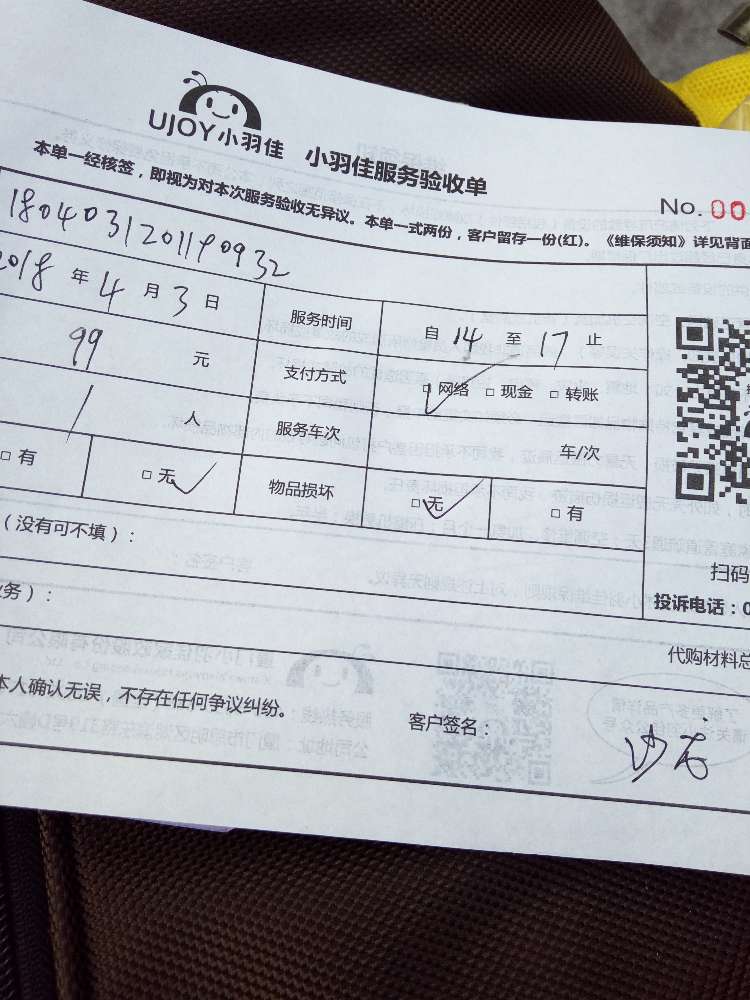 UJOY小羽佳 小羽佳服务验收单
本单一经核签，即视为对本次服务验收无异议。本单一式两份，客户留存一份(红)。《维保须知》详见背面
No. 00
1804031201190932
2018 年 4 月 3 日 服务时间 自 14 至 17 止
99 元 支付方式 □ 网络 □ 现金 □ 转账
1 人 服务车次 车/次
□ 有 □ 无 物品损坏 □ 无 □ 有
（没有可不填）：
扫码
务）：
投诉电话：0
代购材料总
本人确认无误，不存在任何争议纠纷。 客户签名：